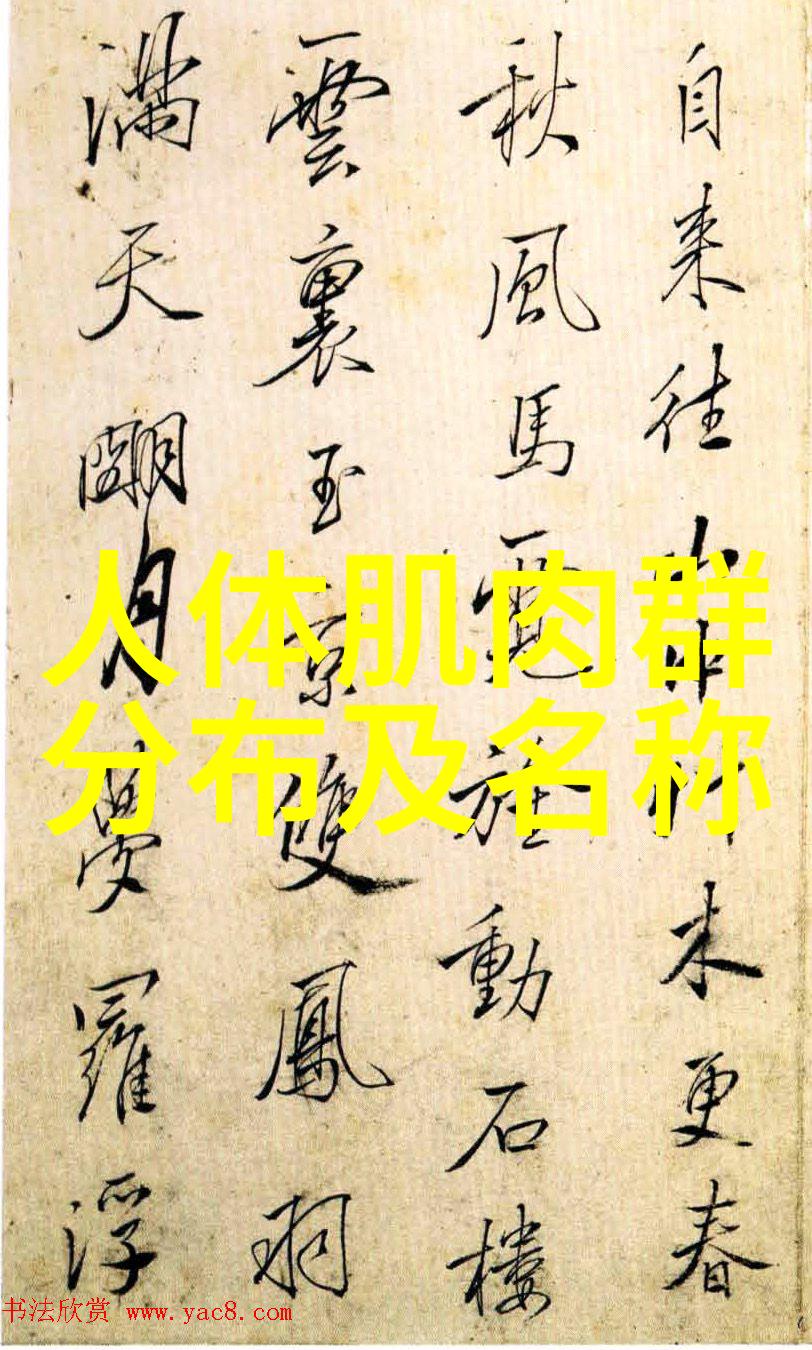 自来往山中更春
秋風馬霓旌動石樓
雲裏玉京雙鳳羽
滿天月夢羅浮
人体肌肉群
分布及名称
书法欣赏 www.yac8.com